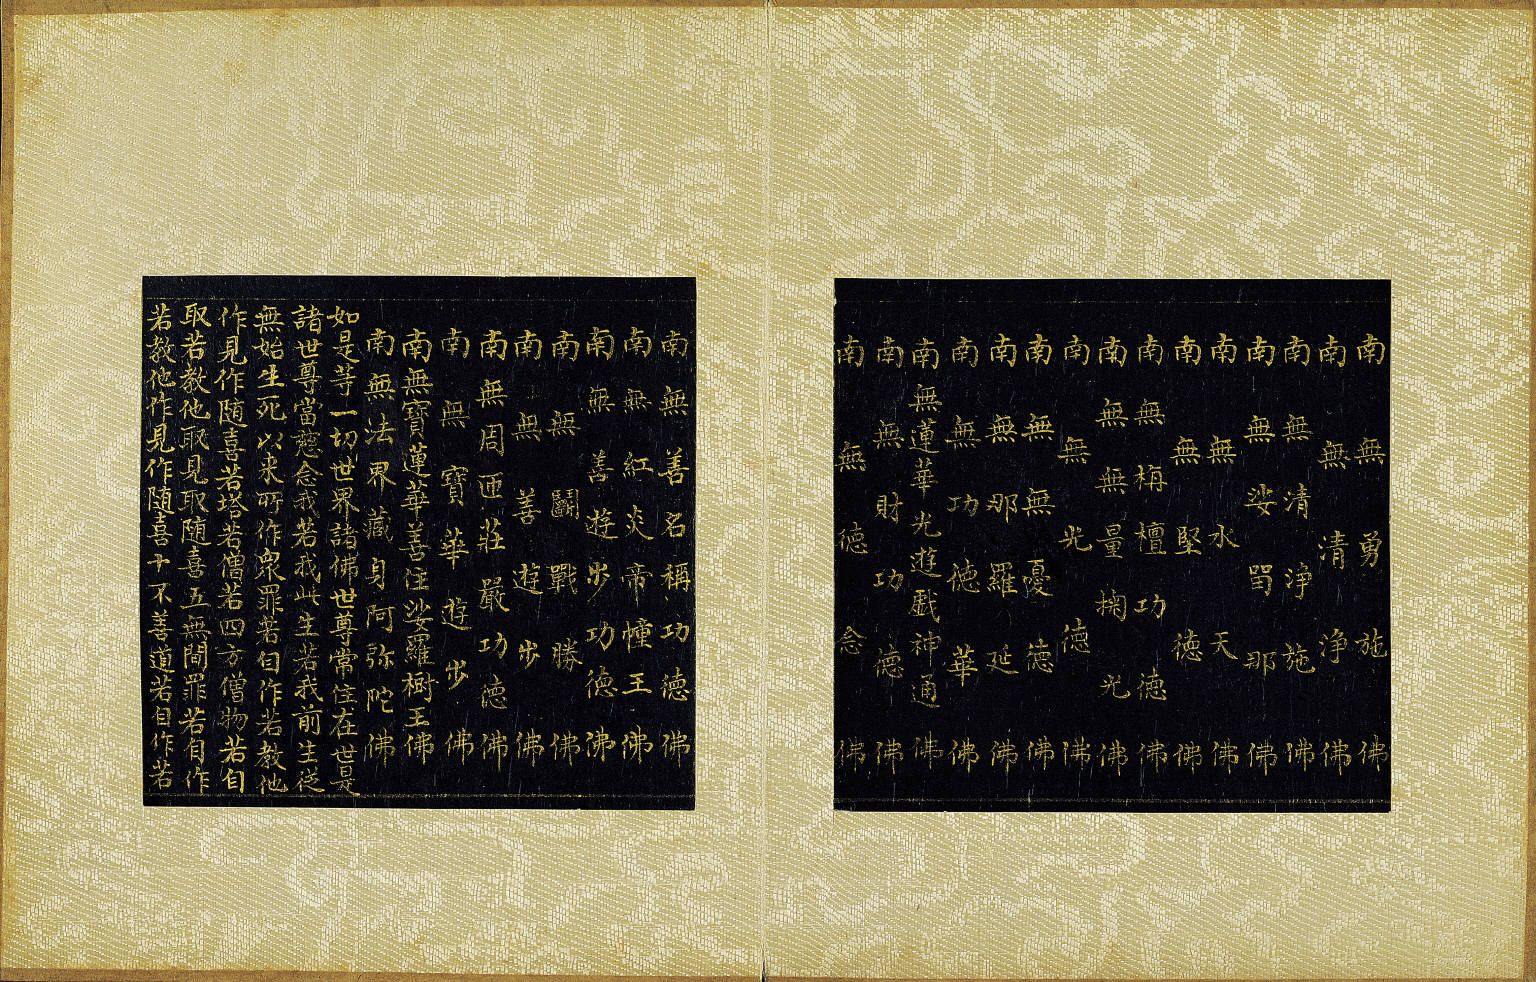 南無勇施佛
南無清淨佛
南無清淨施佛
南無娑㽞那佛
南無水天佛
南無堅德佛
南無栴檀功德佛
南無無量掬光佛
南無光德佛
南無無憂德佛
南無那羅延佛
南無功德華佛
南無蓮華光遊戲神通佛
南無財功德佛
南無德念佛
南無善名稱功德佛
南無紅炎帝幢王佛
南無善遊步功德佛
南無鬪戰勝佛
南無善遊步佛
南無周匝莊嚴功德佛
南無寶華遊步佛
南無寶蓮華善住娑羅樹王佛
南無法界藏身阿弥陀佛
如是等一切世界諸佛世尊常住在世是
諸世尊當慈念我若我此生若我前生從
無始生死以来所作衆罪若自作若教他
作見作随喜若塔若僧若四方僧物若自
取若教他取見取随喜五無間罪若自作
若教他作見作随喜十不善道若自作若